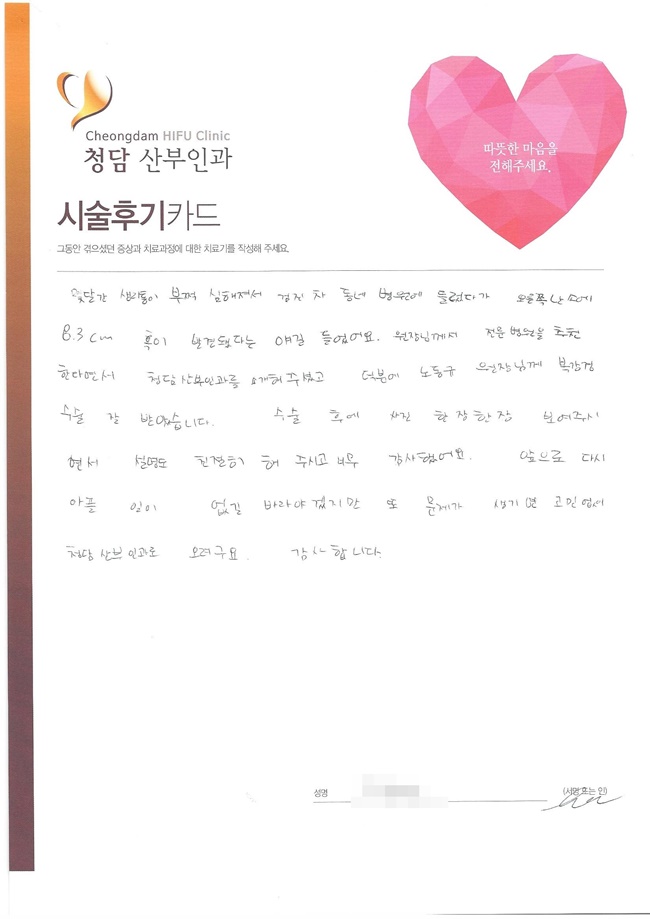 Cheongdam HIFU Clinic
청담 산부인과
따뜻한 마음을
전해주세요.
시술후기카드
그동안 겪으셨던 증상과 치료과정에 대한 치료기를 작성해 주세요.
몇달간 생리통이 부쩍 심해져서 검진 차 동네 병원에 들렀다가 오른쪽 난소에
8.3cm 혹이 발견됐다는 얘길 들었어요. 원장님께서 전문병원을 추천
한다면서 청담산부인과를 소개해주셨고 덕분에 노동규 원장님께 복강경
수술 잘 받았습니다. 수술 후에 사진 한장한장 보여주시
면서 설명도 친절히 해 주시고 너무 감사했어요. 앞으로 다시
아플 일이 없길 바라야겠지만 또 문제가 생기면 고민없이
청담산부인과로 오려구요. 감사합니다.
성명
(서명 또는 인)